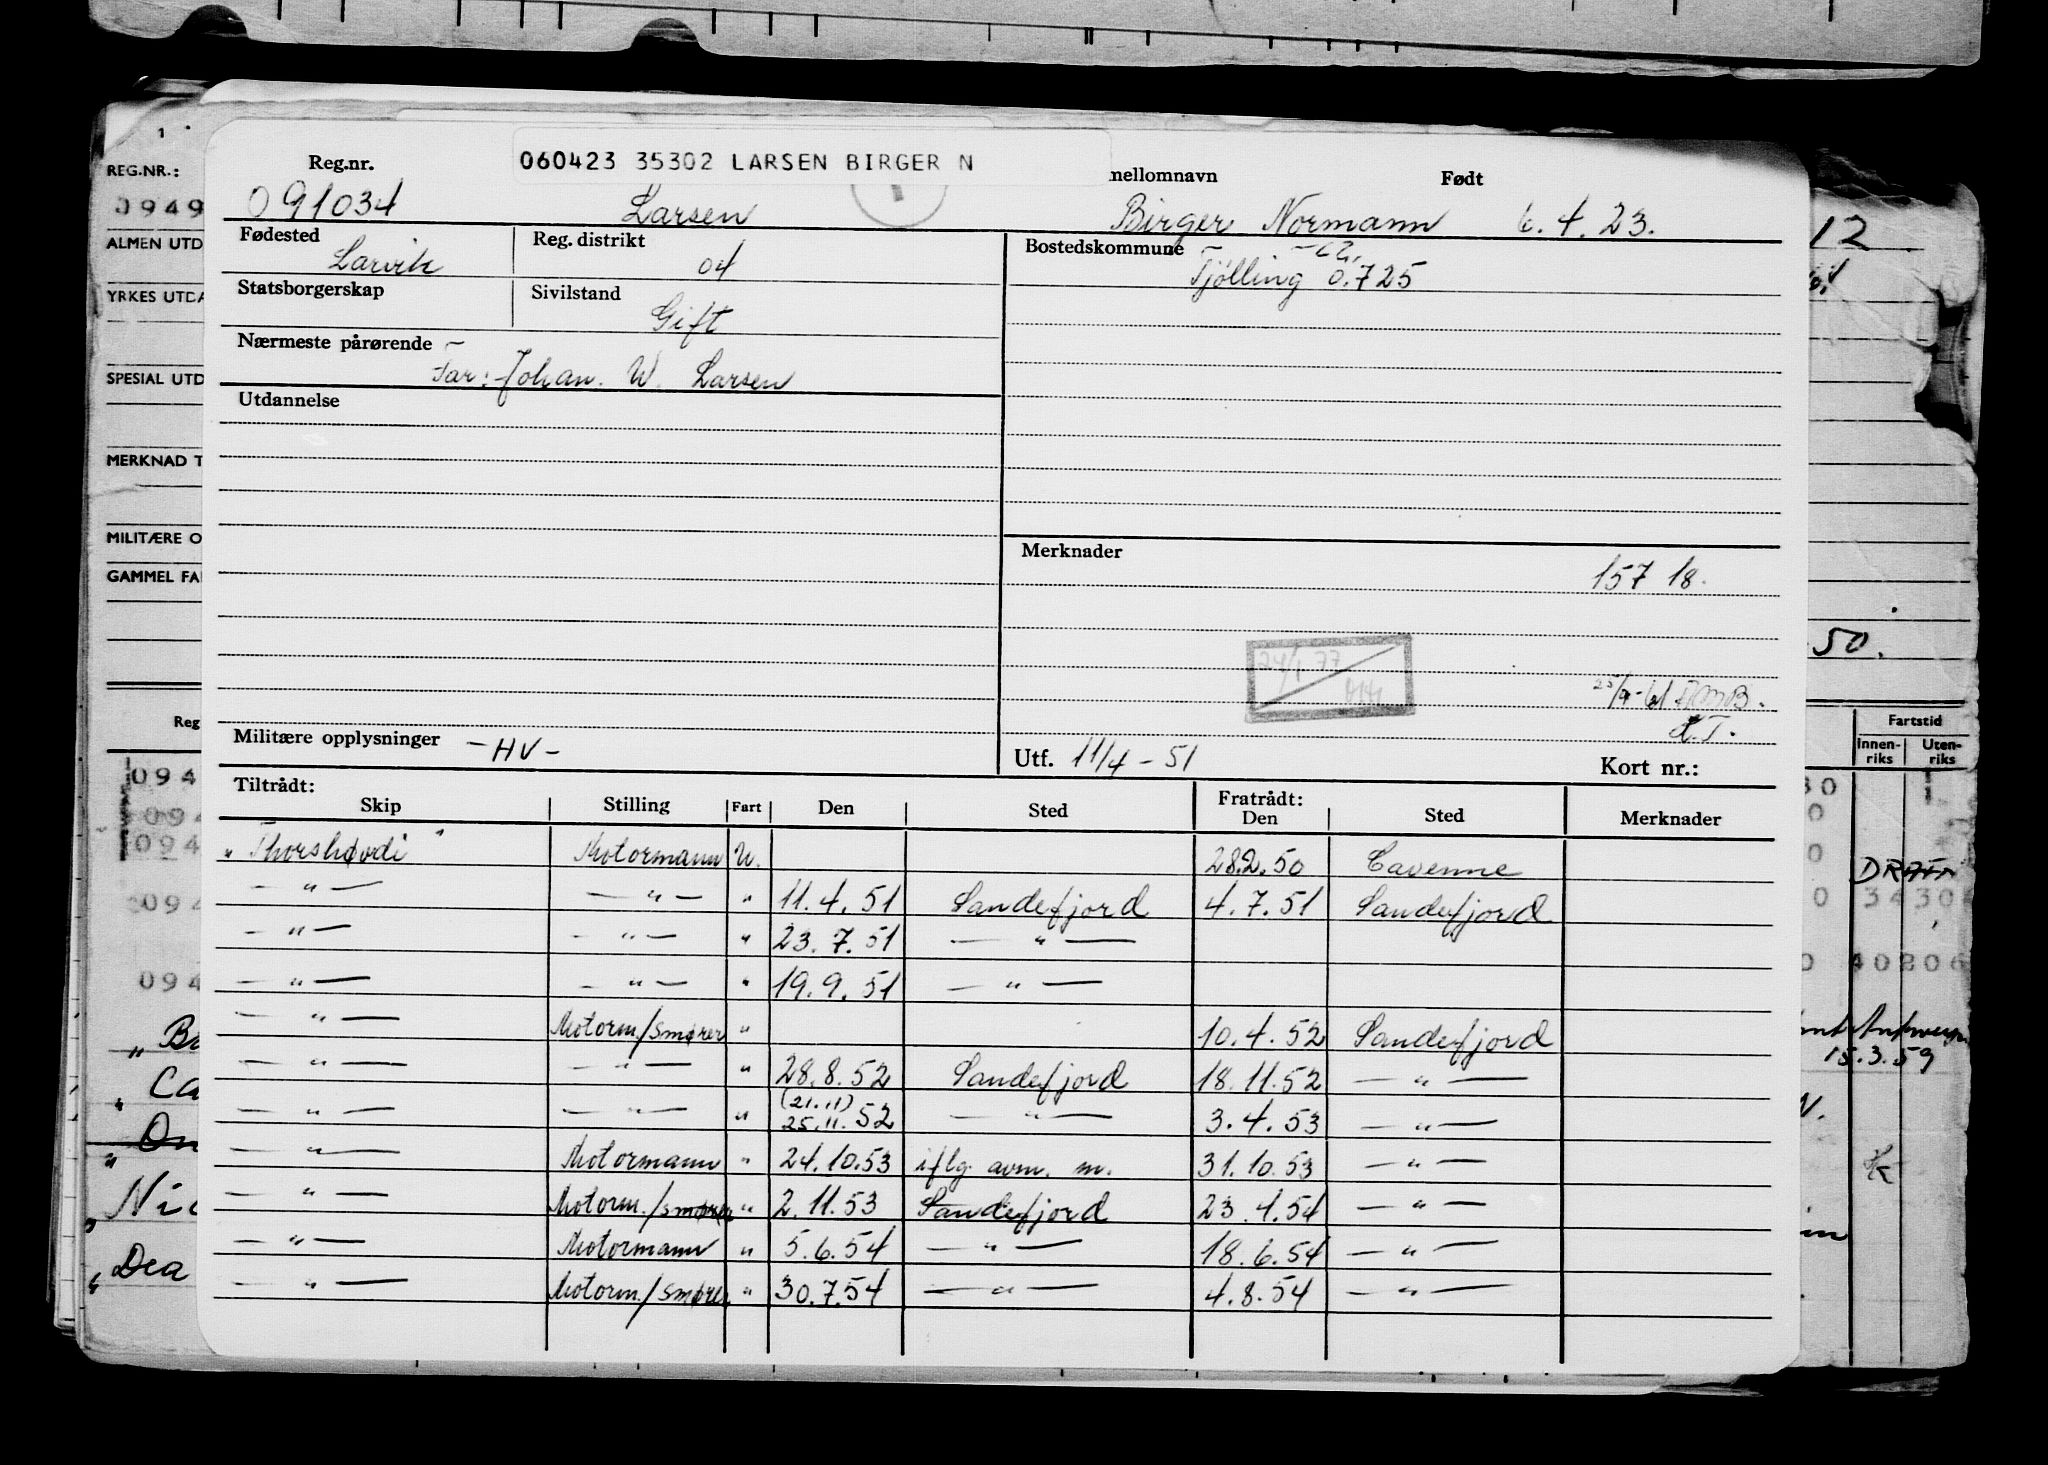 060423 35302 LARSEN BIRGER N
Reg.nr. mellomnavn Født
091034 Larsen Birger Normann 6.4.23.
Fødested Larvik Reg. distrikt 04 Bostedskommune Tjølling 0.725
Statsborgerskap Sivilstand Gift
Nærmeste pårørende Far: Johan. W. Larsen
Utdannelse
Merknader
157 18.
24/1 77
25/9-61
H.T.
Militære opplysninger -HV- Utf. 11/4-51 Kort nr.:
Tiltrådt: Fratrådt:
Skip Stilling Fart Den Sted Den Sted Merknader
"Thorshøvdi" Motormann U. 28.2.50 Cavenne
—"— —"— " 11.4.51 Sandefjord 4.7.51 Sandefjord
—"— —"— " 23.7.51 —"—
—"— —"— " 19.9.51 —"—
—"— Motorm/smører " 10.4.52 Sandefjord
—"— —"— " 28.8.52 Sandefjord 18.11.52 —"—
—"— —"— " (21.11) 25.11.52 —"— 3.4.53 —"—
—"— Motormann " 24.10.53 iflg. avm. m. 31.10.53 —"—
—"— Motorm./smører " 2.11.53 Sandefjord 23.4.54 —"—
—"— Motormann " 5.6.54 —"— 18.6.54 —"—
—"— Motorm./smører " 30.7.54 —"— 4.8.54 —"—
1
REG.NR.:
0949
ALMEN UTD
YRKES UTDA
SPESIAL UTD
MERKNAD T
MILITÆRE O
GAMMEL FA
Reg
094
094
094
094
094
"Ca
"Nic
"Dea
12
50.
Fartstid
Innen-riks Uten-riks
3430
40206
15.3.59